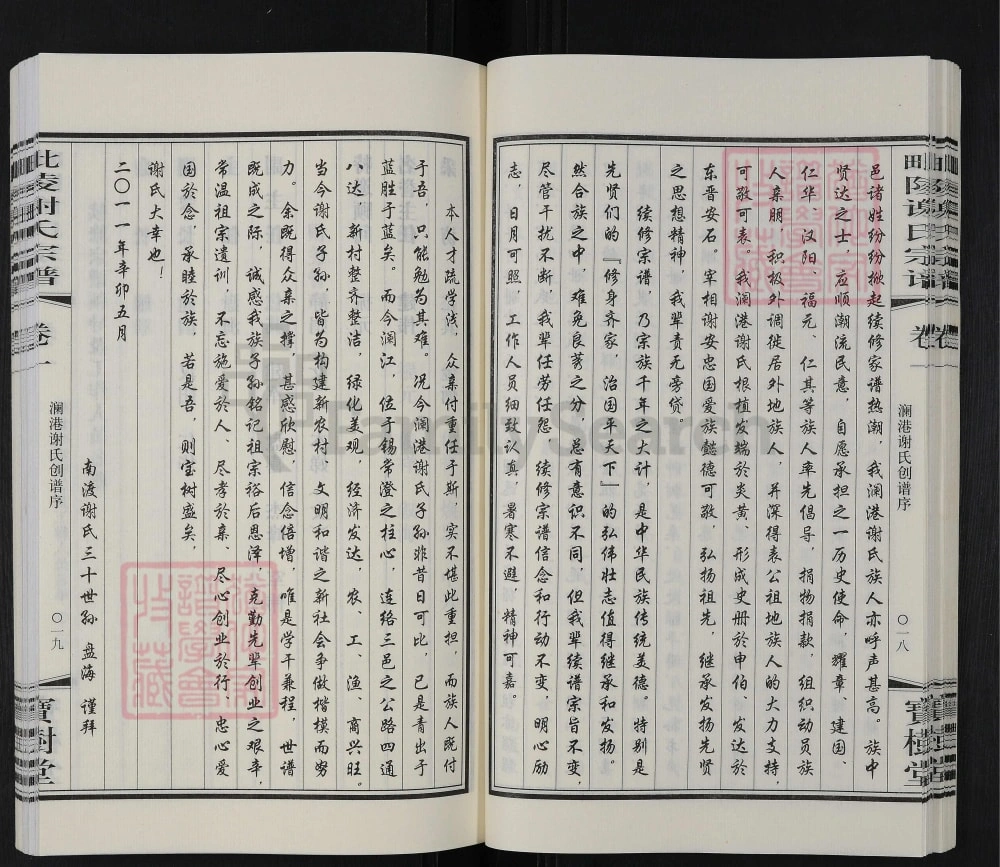 邑诸姓纷纷掀起续修家谱热潮，我澜港谢氏族人亦呼声甚高。族中
贤达之士，应顺潮流民意，自愿承担之一历史使命，耀章、建国、
仁华、汉阳、福元、仁其等族人率先倡导，捐物捐款，组织动员族
人亲朋，积极外调徙居外地族人，并深得表公祖地族人的大力支持，
可敬可表。我澜港谢氏根植发端於炎黄、形成史册於申伯、发达於
东晋安石。宰相谢安忠国爱族懿德可敬，弘扬祖先，继承发扬先贤
之思想精神，我辈责无旁贷。
续修宗谱，乃宗族千年之大计，是中华民族传统美德。特别是
先贤们的『修身齐家，治国平天下』的弘伟壮志值得继承和发扬。
然合族之中，难免良莠之分，总有意识不同，但我辈续谱宗旨不变，
尽管干扰不断，我辈任劳任怨，续修宗谱信念和行动不变。明心励
志，日月可照，工作人员细致认真，暑寒不避，精神可嘉。
毗陵谢氏宗谱
卷一
澜港谢氏创谱序
〇一八
寶樹堂
本人才疏学浅，众亲付重任于斯，实不堪此重担，而族人既付
于吾，只能勉为其难。况今澜港谢氏子孙非昔日可比，已是青出于
蓝胜于蓝矣。而今澜江，位于锡常澄之拄心，连络三邑之公路四通
八达，新村整齐整洁，绿化美观，经济发达，农、工、渔、商兴旺。
当今谢氏子孙，皆为构建新农村，文明和谐之新社会争做楷模而努
力。余既得众亲之撑，甚感欣慰，信念倍增，唯是学干兼程，世谱
既成之际，诚感我族子孙铭记祖宗裕后恩泽，克勤先辈创业之艰辛，
常温祖宗遗训，不忘施爱於人、尽孝於亲、尽心创业於行、忠心爱
国於念，承睦於族，若是吾，则宝树盛矣，
谢氏大幸也！
二〇一一年辛卯五月
南渡谢氏三十世孙 盘海 谨拜
毗陵谢氏宗谱
卷一
澜港谢氏创谱序
〇一九
寶樹堂
FamilySearch